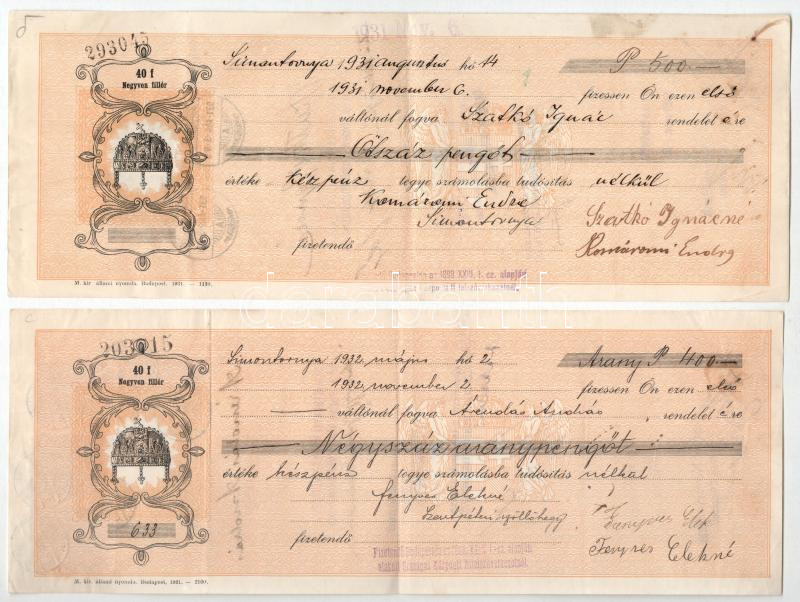 1931 Nov. 6.
293045
40 f
Negyven fillér
Simontornya 1931 augusztus hó 14 P 500.—
1931 november 6. fizessen Ön ezen első
váltónál fogva Szatkó Ignác rendelet ére
Ötszáz pengőt
értéke készpénz tegye számolásba tudósítás nélkül
Komáromi Endre
Simontornya
Szatkó Ignácné
Komáromi Endre
fizetendő
M. kir. állami nyomda. Budapest, 1931. —
203015
40 f
Negyven fillér
633
Simontornya 1932 május hó 2 Arany P 400.—
1932 november 2. fizessen Ön ezen első
váltónál fogva Árendás András, rendelet ére
Négyszáz aranypengőt
értéke készpénz tegye számolásba tudósítás nélkül
Fenyves Elekné
Szentpéteri szőllőhegy
Fenyves Elek
Fenyves Elekné
fizetendő
M. kir. állami nyomda. Budapest, 1931. —